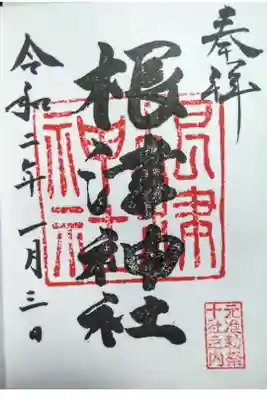 奉拝
根津神社
令和二年一月三日
根津
神社
元准勅祭
十社之内